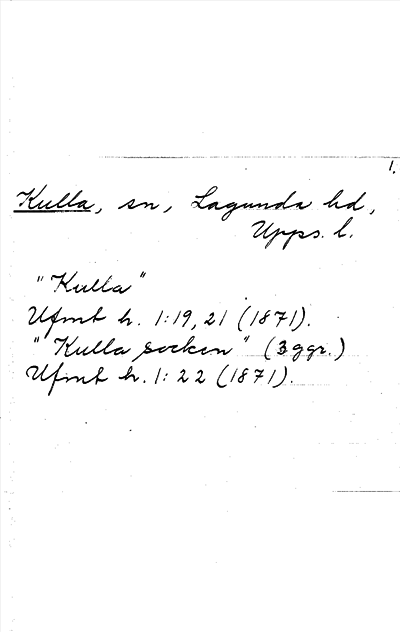 1.
Kulla, sn, Lagunda hd,
Upps. l.
"Kulla"
Ufmt h. 1:19, 21 (1871).
"Kulla socken" (3 ggr.)
Ufmt h. 1: 22 (1871).